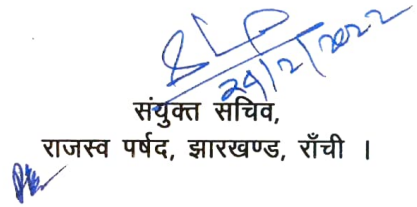 24/2/2022
संयुक्त सचिव,
राजस्व पर्षद, झारखण्ड, राँची ।